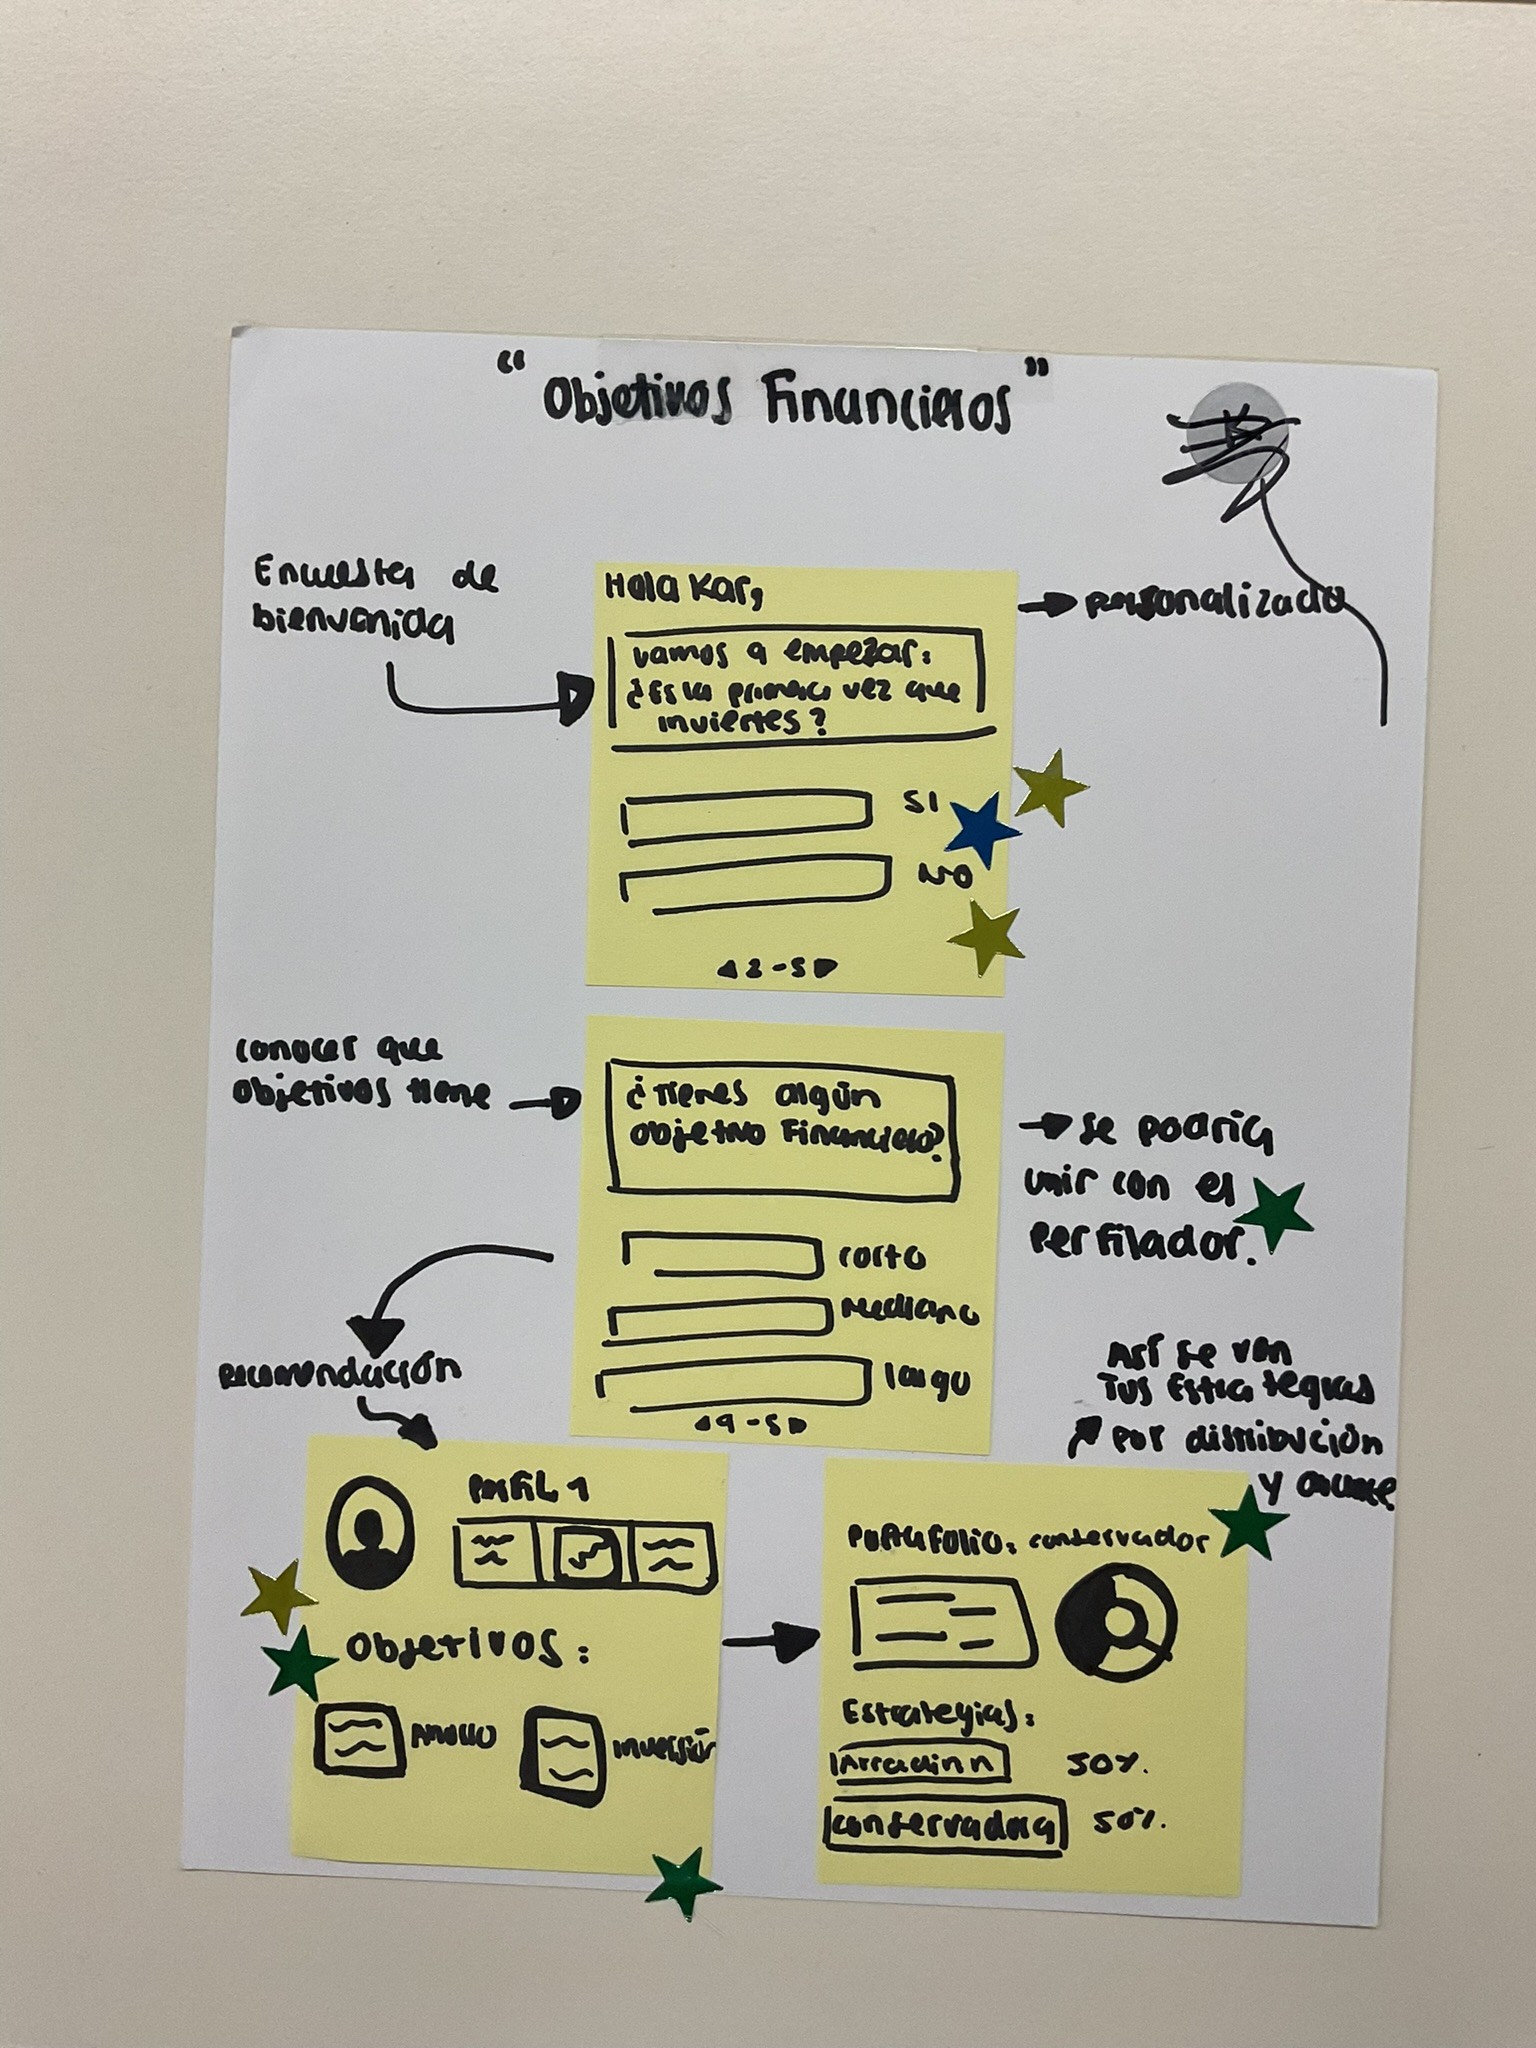 "Objetivos Financieros"
Encuesta de
bienvenida
Hola Kar,
vamos a empezar:
¿Es la primera vez que
inviertes?
SI
NO
2-5
personalizado
conocer que
objetivos tiene
¿Tienes algún
objetivo Financiero?
corto
Mediano
largo
4-5
se podría
unir con el
perfilador.
Recomendación
Perfil 1
Objetivos:
Ahorro
inversión
Así se ven
Tus Estrategias
por distribución
y
Portafolio: conservador
Estrategias:
50%.
conservadora 50%.